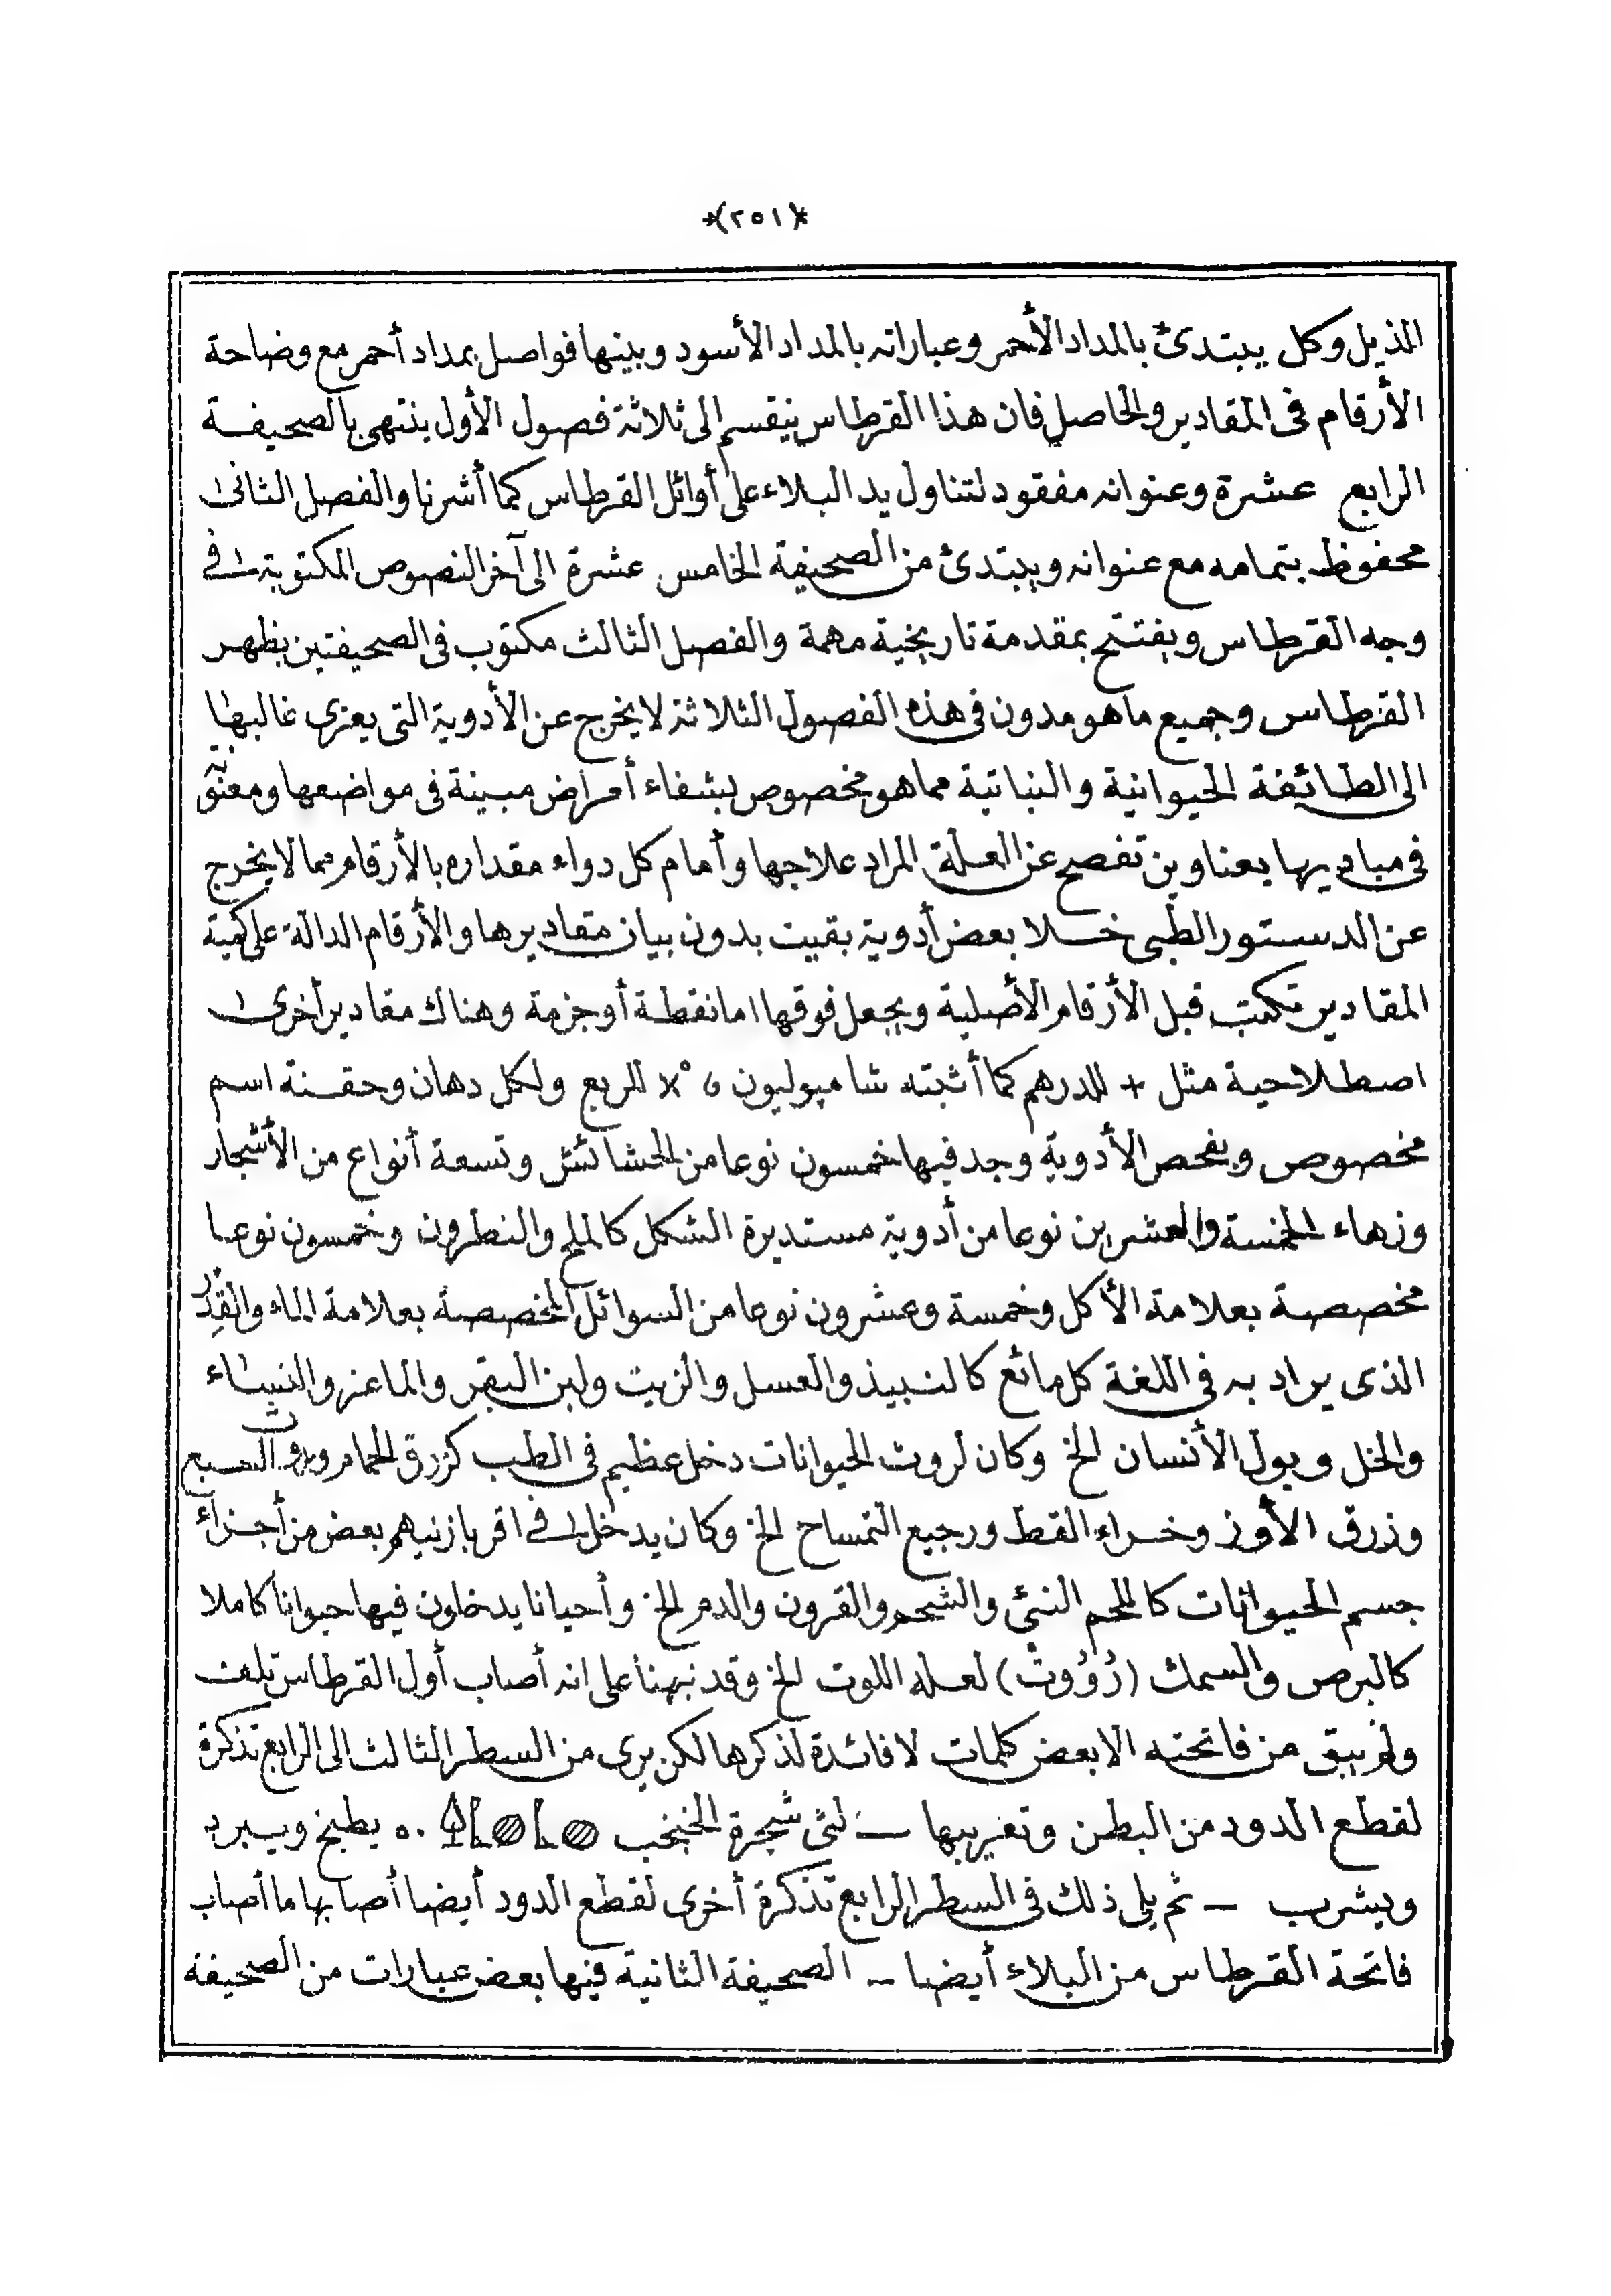 *(٢٥١)*
المذيل وكل يبتدئ بالمداد الأحمر وعباراته بالمداد الأسود وبينها فواصل بمداد أحمر مع وضاحة
الأرقام فى المقادير والحاصل فان هذا القرطاس ينقسم الى ثلاثة فصول الأول ينتهى بالصحيفة
الرابع عشرة وعنوانه مفقود لتناول يد البلاء على أوائل القرطاس كما أشرنا والفصل الثانى
محفوظ بتمامه مع عنوانه ويبتدئ من الصحيفة الخامس عشرة الى آخر النصوص المكتوبة فى
وجه القرطاس ويفتتح بمقدمة تاريخية مهمة والفصل الثالث مكتوب فى الصحيفتين بظهر
القرطاس وجميع ما هو مدون فى هذه الفصول الثلاثة لا يخرج عن الأدوية التى يعزى غالبها
الى الطائفة الحيوانية والنباتية مما هو مخصوص بشفاء أمراض مبينة فى مواضعها ومعنونة
فى مباديها بعناوين تفصح عن العلة المراد علاجها وأمام كل دواء مقداره بالأرقام مما لا يخرج
عن الدستور الطبى خلا بعض أدوية بقيت بدون بيان مقاديرها والأرقام الدالة على كمية
المقادير تكتب قبل الأرقام الأصلية ويجعل فوقها اما نقطة أو جزمة وهناك مقادير أخرى
اصطلاحية مثل + للدرهم كما أثبته شامپوليون و x° للربع ولكل دهان وحقنة اسم
مخصوص وبفحص الأدوية وجد فيها خمسون نوعا من الحشائش وتسعة أنواع من الأشجار
وزهاء الخمسة والعشرين نوعا من أدوية مستديرة الشكل كالملح والنطرون وخمسون نوعا
مخصصة بعلامة الأكل وخمسة وعشرون نوعا من السوائل المخصصة بعلامة الماء والقِدْر
الذى يراد به فى اللغة كل مائع كالنبيذ والعسل والزيت ولبن البقر والماعز والنساء
والخل وبول الأنسان الخ وكان لروث الحيوانات دخل عظيم فى الطب كزرق الحمام وروث السبع
وزرق الأوز وخراء القط ورجيع التمساح الخ وكان يدخل فى اقربازينهم بعض من أجزاء
جسم الحيوانات كاللحم النئ والشحم والقرون والدم الخ وأحيانا يدخلون فيها حيوانا كاملا
كالبرص والسمك (رُوُوتْ) لعله اللوت الخ وقد نبهنا على انه أصاب أول القرطاس تلف
ولم يبق من فاتحته الا بعض كلمات لا فائدة لذكرها لكن يرى من السطر الثالث الى الرابع تذكرة
لقطع الدود من البطن وتعريبها — لثى شجرة الخبخب ٥٠ يطبخ ويبرد
ويشرب — ثم يلى ذلك فى السطر الرابع تذكرة أخرى لقطع الدود أيضا أصابها ما أصاب
فاتحة القرطاس من البلاء أيضا — الصحيفة الثانية فيها بعض عبارات من الصحيفة